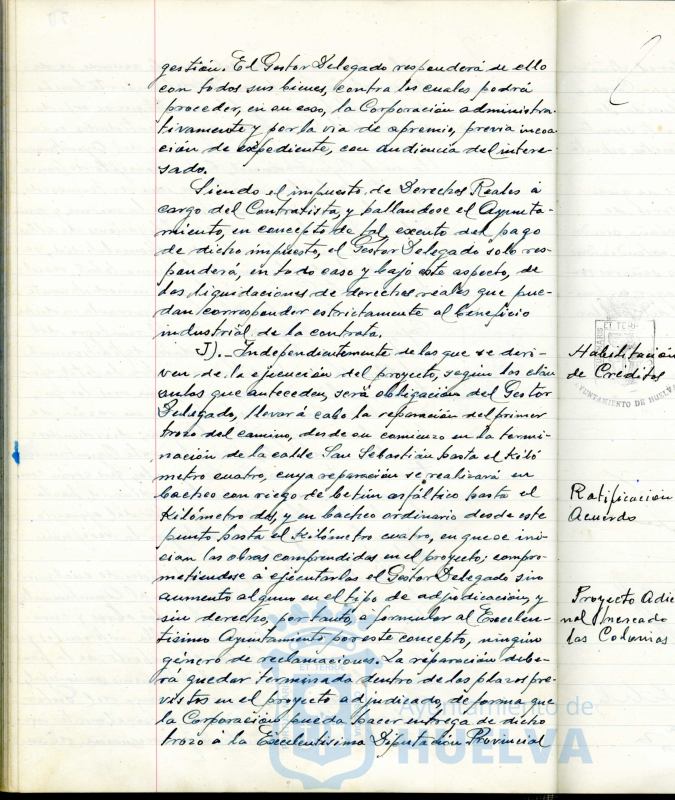 gestión. El Gestor Delegado responderá de ello
con todos sus bienes, contra los cuales podrá
proceder, en su caso, la Corporación administra-
tivamente y por la via de apremio, previa incoa-
ción de expediente, con audiencia del intere-
sado.
Siendo el impuesto de Derechos Reales á
cargo del Contratista, y hallandose el Ayunta-
miento, en concepto de tal, exento del pago
de dicho impuesto, el Gestor Delegado solo res-
ponderá, en todo caso y bajo este aspecto, de
las liquidaciones de derechos reales que pue-
dan corresponder estrictamente al beneficio
industrial de la contrata.
J).- Independientemente de las que se deri-
ven de la ejecución del proyecto, según las cláu
sulas que anteceden, será obligación del Gestor
Delegado, llevar á cabo la reparación del primer
trozo del camino, desde su comienzo en la termi-
nación de la calle San Sebastián hasta el Kiló
metro cuatro, cuya reparación se realizará en
bacheo con riego de betún asfáltico hasta el
Kilómetro dos, y en bacheo ordinario desde este
punto hasta el Kilómetro cuatro, en que se ini-
cian las obras comprendidas en el proyecto; compro-
metiendose á ejecutarlas el Gestor Delegado sin
aumento alguno en el tipo de adjudicación, y
sin derecho, por tanto, a formular al Excelen-
tísimo Ayuntamiento por este concepto, ningún
género de reclamaciones. La reparación debe-
rá quedar terminada dentro de los plazos pre-
vistos en el proyecto adjudicado, de forma que
la Corporación pueda hacer entrega de dicho
trozo á la Excelentísima Diputación Provincial
Habilitación
de Créditos
AYUNTAMIENTO DE HUELVA
Ratificación
Acuerdo
Proyecto Adic
nal mercado
las Colonias
Ayuntamiento de
HUELVA